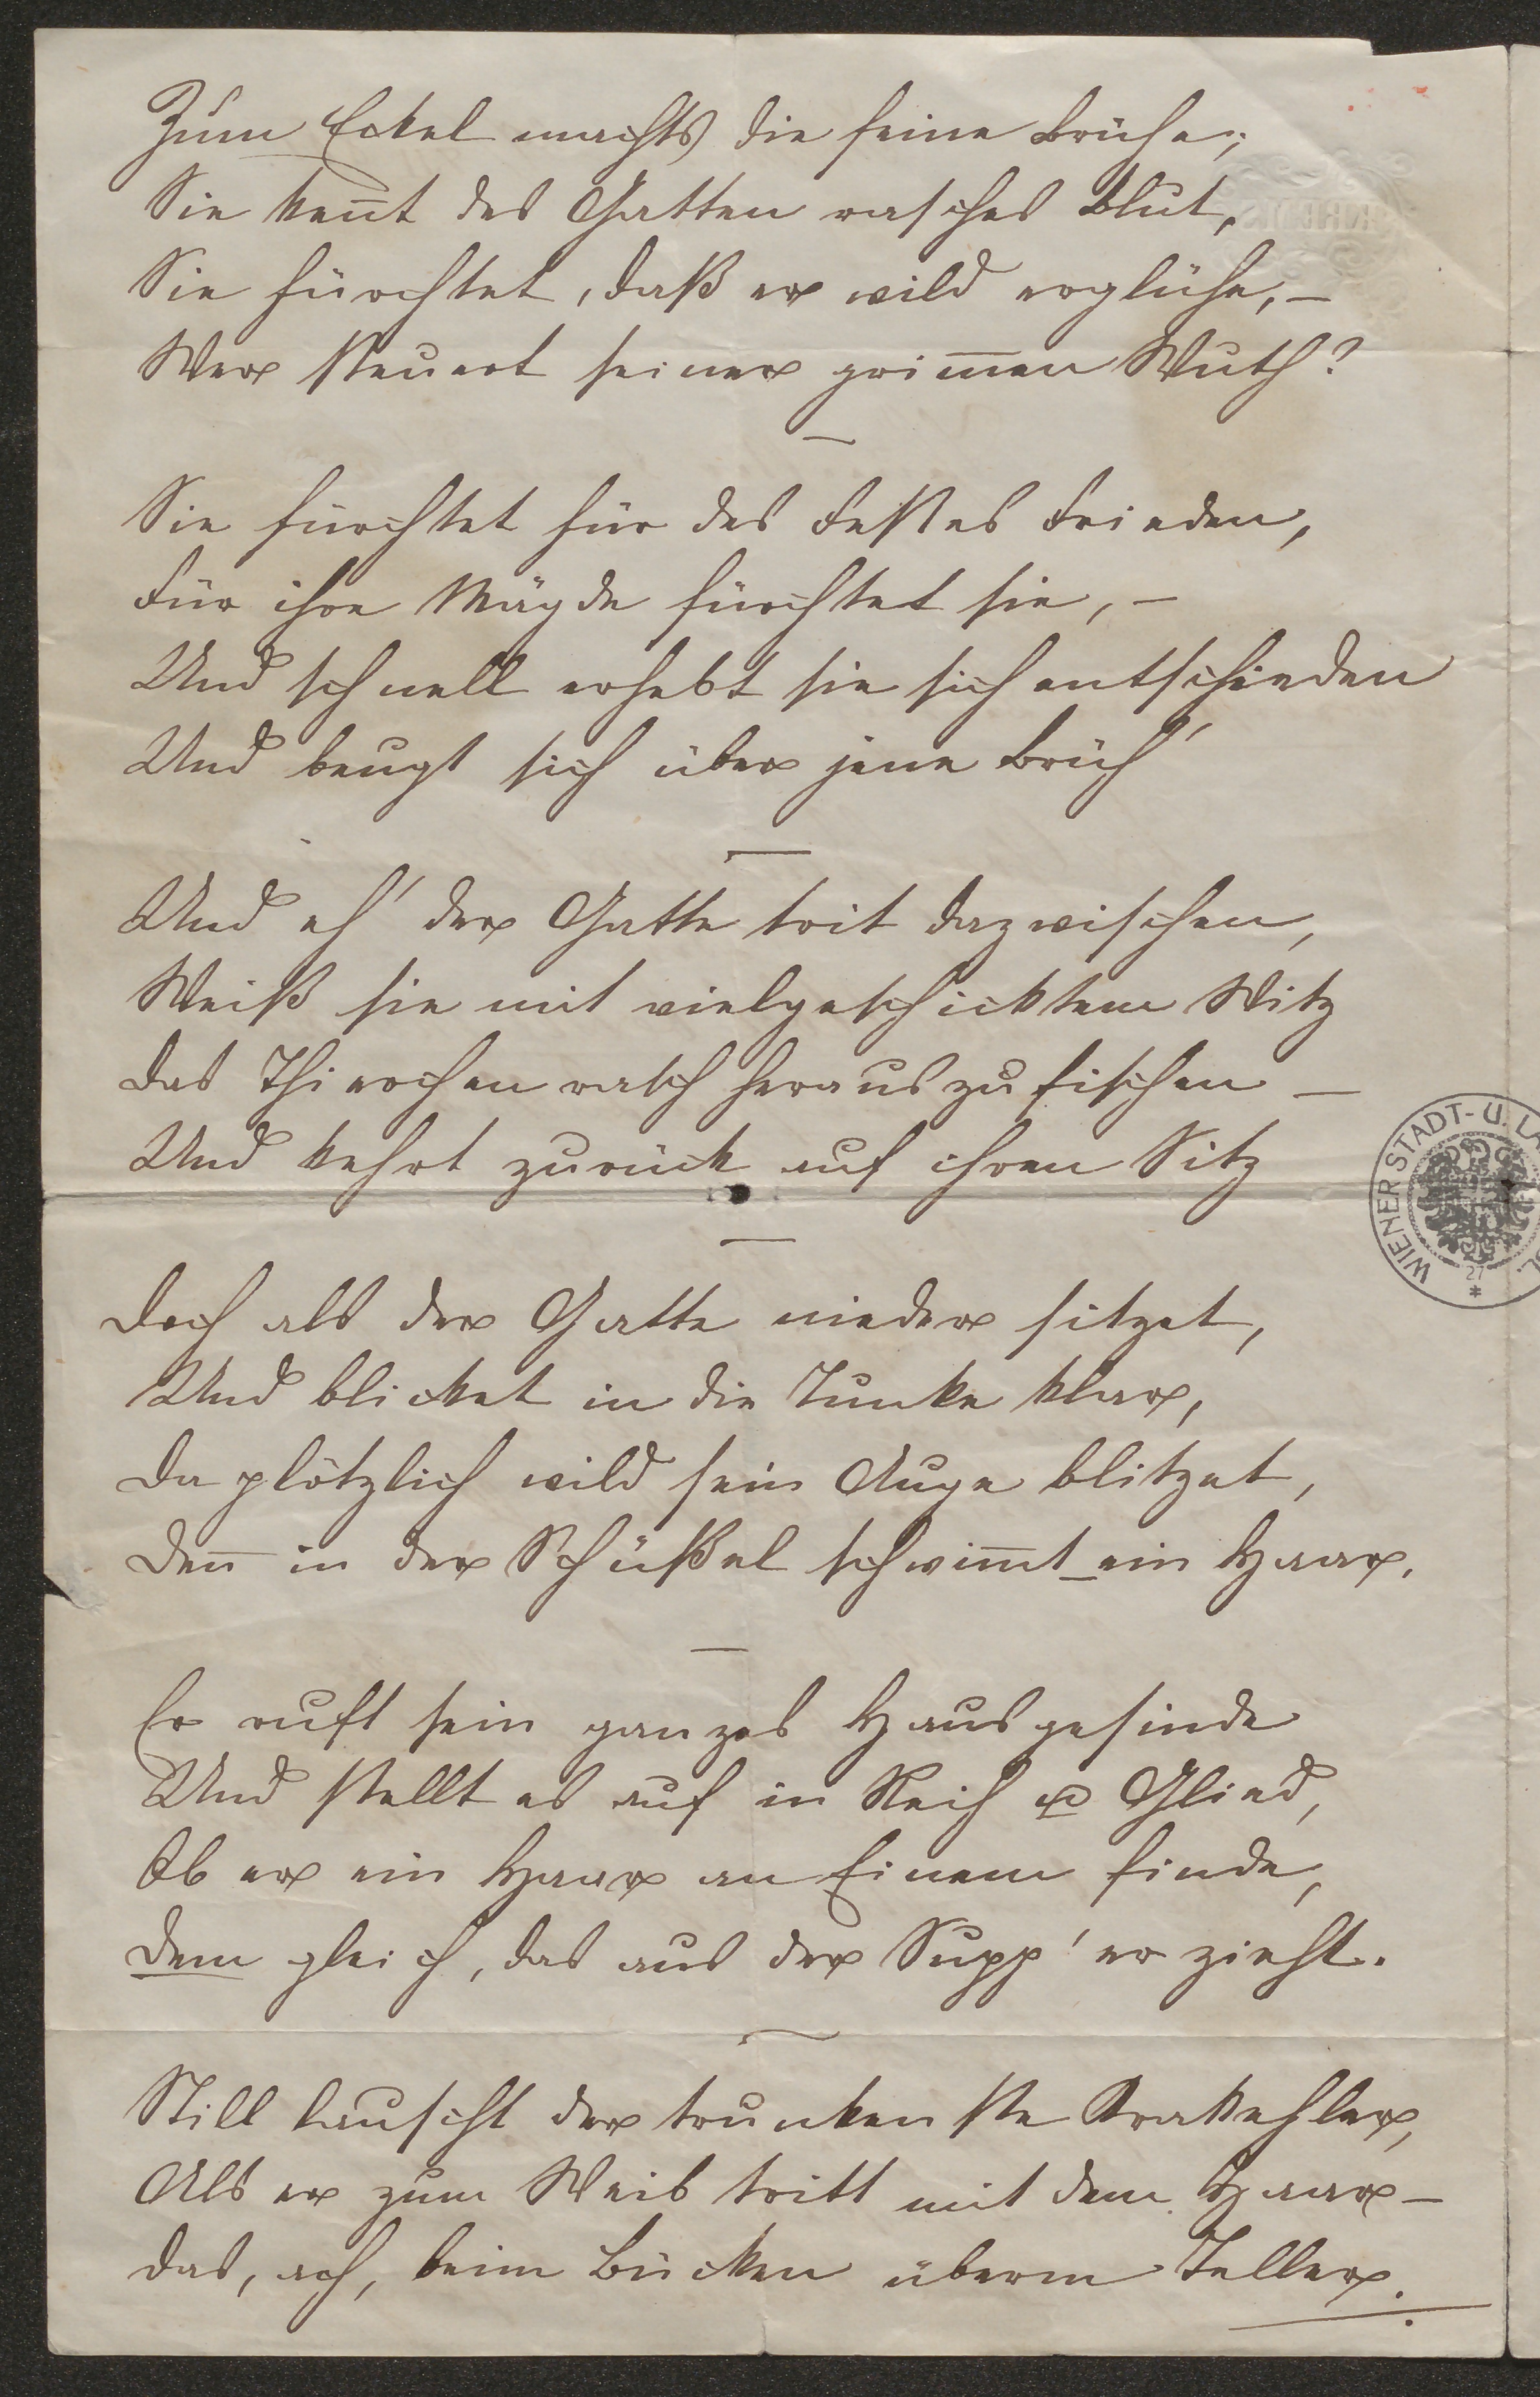 Zum Eckel machts die feine Brühe;
Sie keñt des Gatten rasches Blut,
Sie fürchtet, daß er wild erglühe, –
Wer steuert seiner grim̄en Wuth?
–
Sie fürchtet für des Festes Frieden,
Für ihre Mägde fürchtet sie, –
Und schnell erhebt sie sich entschieden
Und beugt sich über jene Brüh'
–
Und eh' der Gatte trit dazwischen,
Weiß sie mit vielgeschicktem Witz
Das Thierchen rasch herauszufischen –
Und kehrt zurück auf ihren Sitz
–
Doch als der Gatte nieder sitzet,
Und blicket in die Tunke klar,
Da plötzlich wild sein Auge blitzet,
Deñ in der Schüßel schwim̄t ein Haar.
–
Er ruft sein ganzes Hausgesinde
Und stellt es auf in Reih u Glied,
Ob er ein Haar an Einem finde,
Dem gleich, das aus der Supp' er zieht.
–
Still lauscht der trunkenste Krakehler,
Als er zum Weib tritt mit dem Haar –
Das, ach, beim Bücken überm Teller.
WIENER STADT- U. LA
27